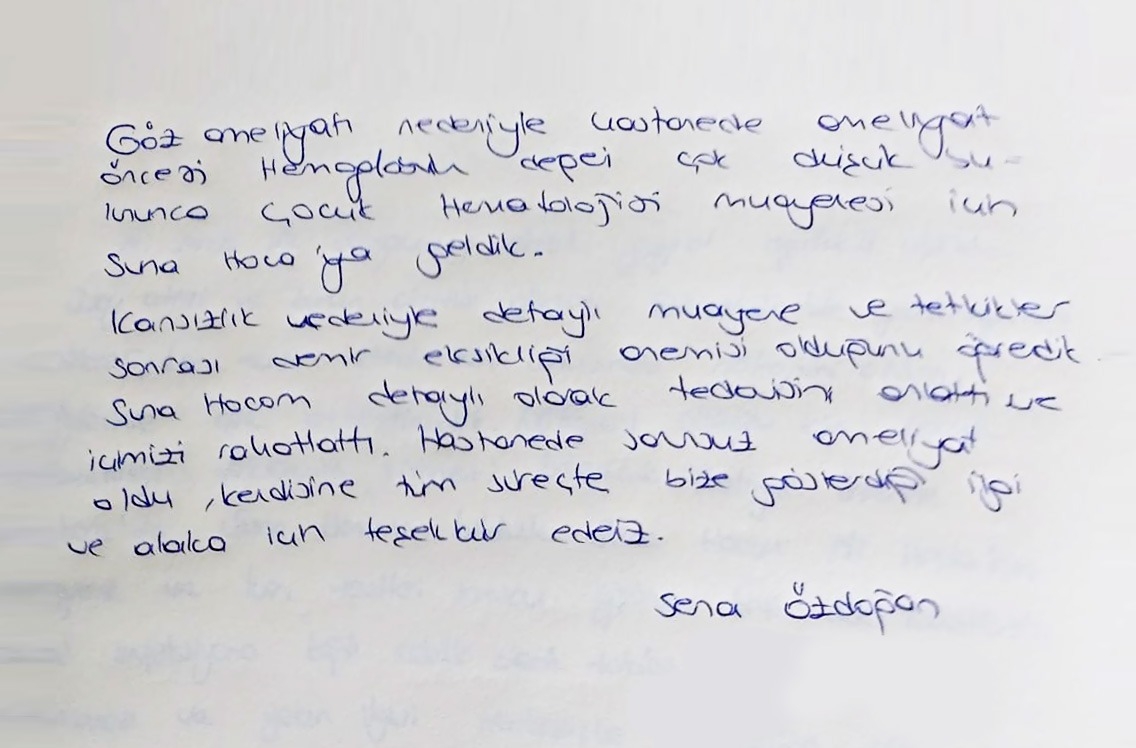 Göz ameliyatı nedeniyle hastanede ameliyat
öncesi Hemoglobin değeri çok düşük bu-
lununca Çocuk Hematolojisi muayenesi için
Suna Hoca'ya geldik.
Kansızlık nedeniyle detaylı muayene ve tetkikler
sonrası demir eksikliği anemisi olduğunu öğrendik
Suna Hocam detaylı olarak tedavisini anlattı ve
içimizi rahatlattı. Hastanede sorunsuz ameliyat
oldu, kendisine tüm süreçte bize gösterdiği ilgi
ve alaka için teşekkür ederiz.
Sena Özdoğan